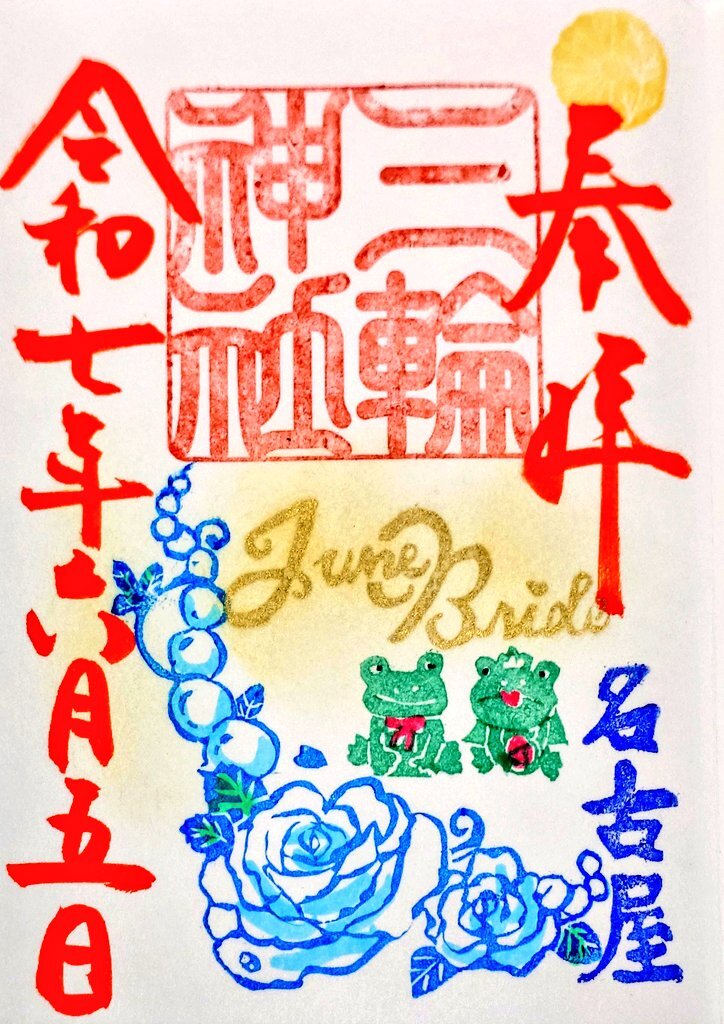 奉拝
三輪
神社
June Bride
名古屋
令和七年六月五日